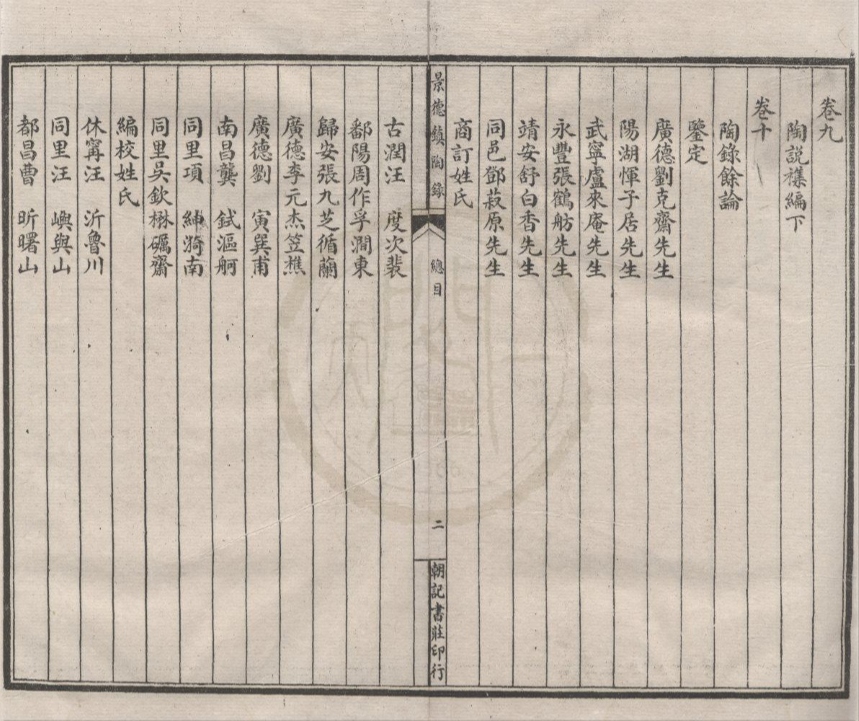 卷九
陶說襍編下
卷十
陶錄餘論
鑒定
廣德劉克齋先生
陽湖惲子居先生
武寧盧來庵先生
永豐張鶴舫先生
靖安舒白香先生
同邑鄧菽原先生
商訂姓氏
景德鎮陶錄
總目
二
朝記書莊印行
古潤汪 度次裴
鄱陽周作孚澗東
歸安張九芝循蘭
廣德李元杰笠樵
廣德劉 寅巽甫
南昌龔 鉽漚舸
同里項 紳漪南
同里吳欽楙礪齋
編校姓氏
休甯汪 沂魯川
同里汪 嶼與山
都昌曹 昕曙山